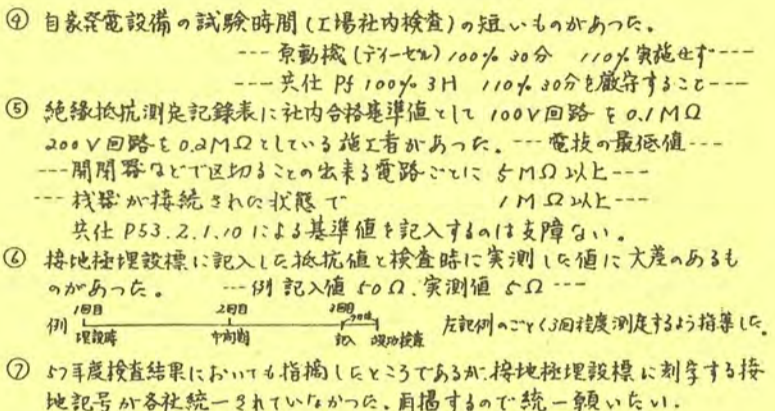 ④ 自家発電設備の試験時間(工場社内検査)の短いものがあった。
--- 原動機(ディーゼル)100% 30分 110%実施せず---
--- 共仕 P5 100% 3H 110% 30分を厳守すること---
⑤ 絶縁抵抗測定記録表に社内合格基準値として 100V回路を0.1MΩ
200V回路を0.2MΩとしている施工者があった。--- 電技の最低値---
---開閉器などで区切ることの出来る電路ごとに 5MΩ以上---
--- 機器が接続された状態で 1MΩ以上---
共仕 P53.2.1.10による基準値を記入するのは支障ない。
⑥ 接地極埋設標に記入した抵抗値と検査時に実測した値に大差のあるも
のがあった。 ---例 記入値 50Ω、実測値 5Ω ---
1回目 2回目 3回目
例 埋設時 中間期 記入 成功検査 左記例のごとく3回程度測定するよう指導した。
⑦ 57年度検査結果においても指摘したところであるが、接地極埋設標に刻字する接
地記号が各社統一されていなかった。再掲するので統一願いたい。